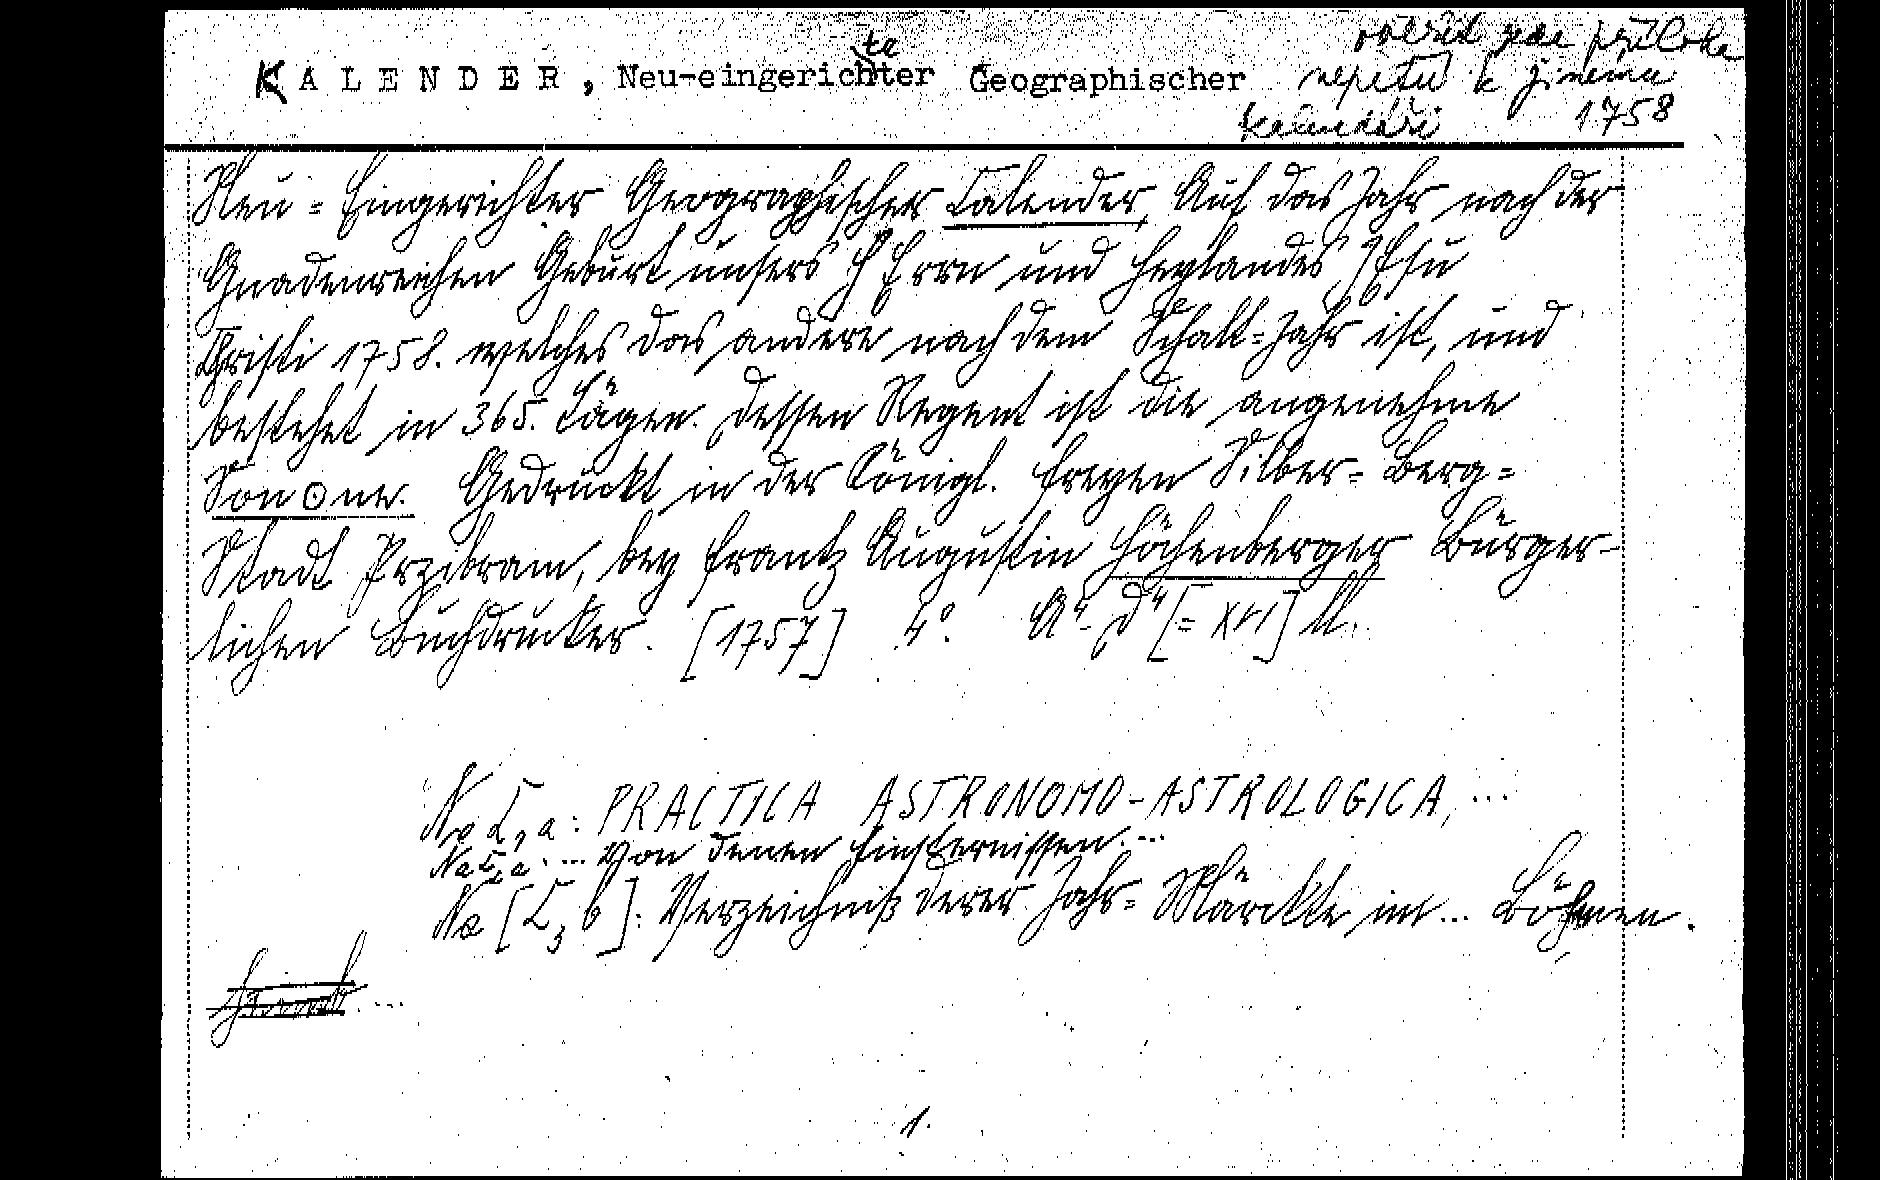 KALENDER, Neu-eingerichter Geographischer
kalendáři 1758
Neu = Eingerichter Geographischer Calender, Auf das Jahr nach der
Gnadenreichen Geburt unsers HErrn und Heylandes JEsu
Christi 1758. welches das andere nach dem Schalt=Jahr ist, und
bestehet in 365. Tägen. Dessen Regent ist die angenehme
Son☉ne. Gedruckt in der Königl. freyen Silber= Berg=
Stadt Przibram, bey Frantz Augustin Höchenberger Bürger-
lichen Buchdrucker. [1757] 4°. A⁴- D⁴ [= XVI] ll.
Na C₂a: PRACTICA ASTRONOMO-ASTROLOGICA, ...
Na C₂a: ... Von denen Finsternissen. ...
Na [C₃b]: Verzeichniß derer Jahr= Märckte im ... Böhmen.
...
1.